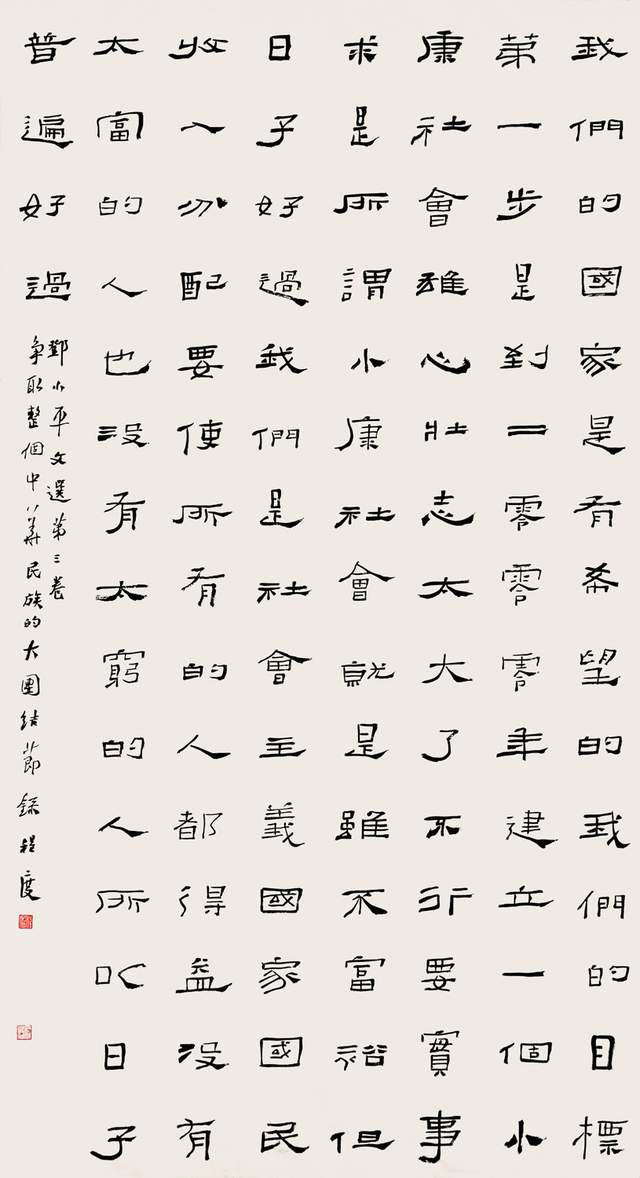 我們的國家是有希望的我們的目標
第一步是到二零零零年建立一個小
康社會雄心壯志太大了不行要實事
求是所謂小康社會就是雖不富裕但
日子好過我們是社會主義國家國民
收入分配要使所有的人都得益没有
太富的人也没有太窮的人所以日子
普遍好過
鄧小平文選第三卷
爭取整個中華民族的大團結節錄程度